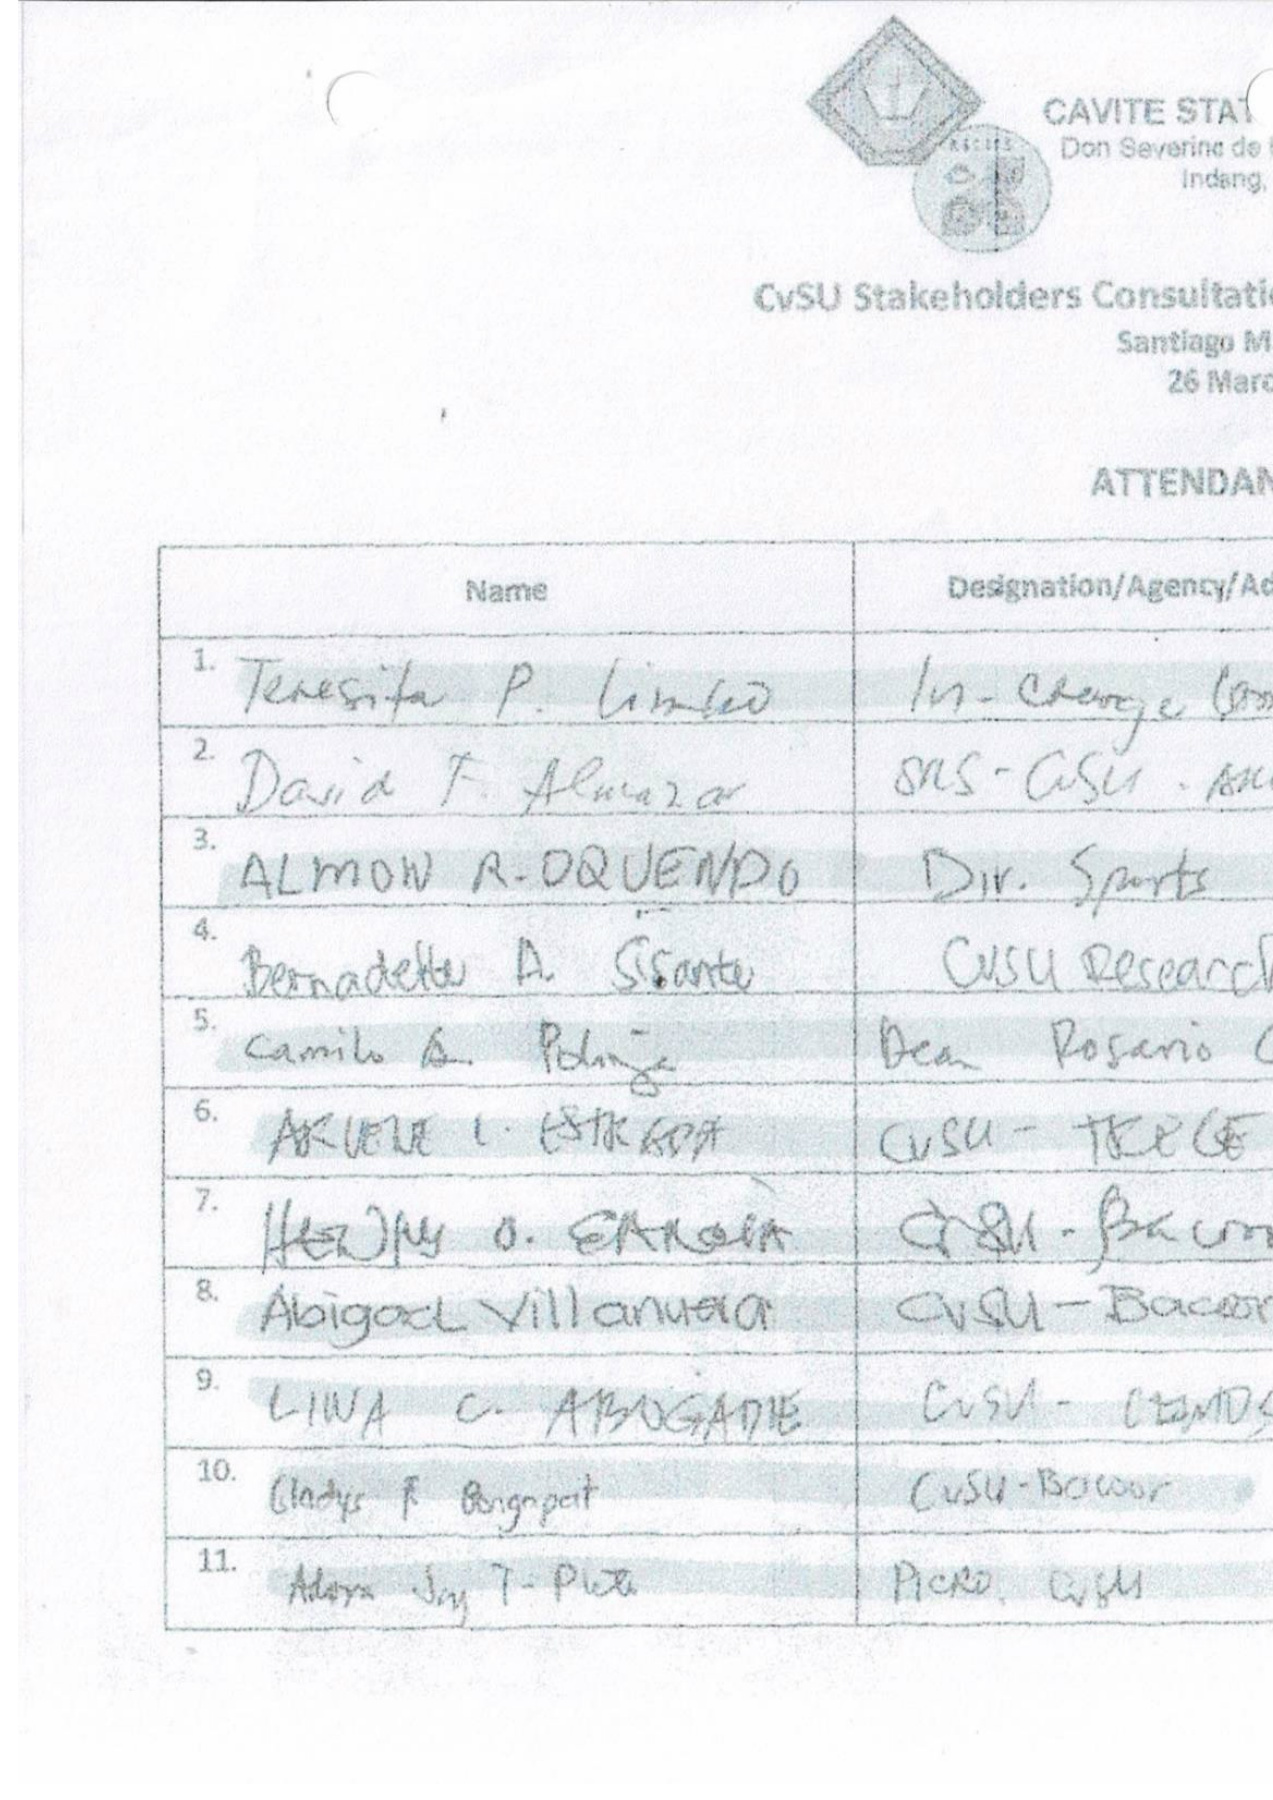 CAVITE STAT
Don Severino de l
Indang,
CvSU Stakeholders Consultatio
Santiago M
26 Marc
ATTENDAN
Name
Designation/Agency/Ad
1. Teresita P.
In-Charge
2. David F. Almazar
CvSU
3. ALMON R. OQUENDO
Div. Sports
4. Bernadette A. Sisante
CvSU Research
5. Camilo A.
Dean Rosario C
6. L. ESTRADA
CvSU - TRECE
7. O. GARCIA
CvSU - Bacoor
8. Abigael Villanueva
CvSU - Bacoor
9. LINA C. ABOGADIE
CvSU -
10. Gladys
CvSU-Bacoor
11. Jay T.
PICRO. CvSU